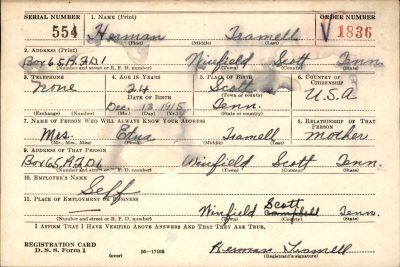 SERIAL NUMBER 1. NAME (Print) ORDER NUMBER
554 Herman Tramell V 1836
(First) (Middle) (Last)
2. ADDRESS (Print)
Box 65, R.F.D.1 Winfield Scott Tenn.
(Number and street or R. F. D. number) (Town) (County) (State)
3. TELEPHONE 4. AGE IN YEARS 5. PLACE OF BIRTH 6. COUNTRY OF CITIZENSHIP
none 24 Scott U.S.A
DATE OF BIRTH (Town or county)
Dec. 13 1915 Tenn.
(Exchange) (Number) (Mo.) (Day) (Yr.) (State or country)
7. NAME OF PERSON WHO WILL ALWAYS KNOW YOUR ADDRESS 8. RELATIONSHIP OF THAT PERSON
Mrs. Tramell Mother
(Mr., Mrs., Miss) (First) (Middle) (Last)
9. ADDRESS OF THAT PERSON
Box 65, R.F.D.1 Winfield Scott Tenn.
(Number and street or R. F. D. number) (Town) (County) (State)
10. EMPLOYER'S NAME
Self
11. PLACE OF EMPLOYMENT OR BUSINESS
Scott
Winfield Campbell Tenn.
(Number and street or R. F. D. number) (Town) (County) (State)
I AFFIRM THAT I HAVE VERIFIED ABOVE ANSWERS AND THAT THEY ARE TRUE.
REGISTRATION CARD
D. S. S. Form 1 (over) 16—17105 Herman Tramell